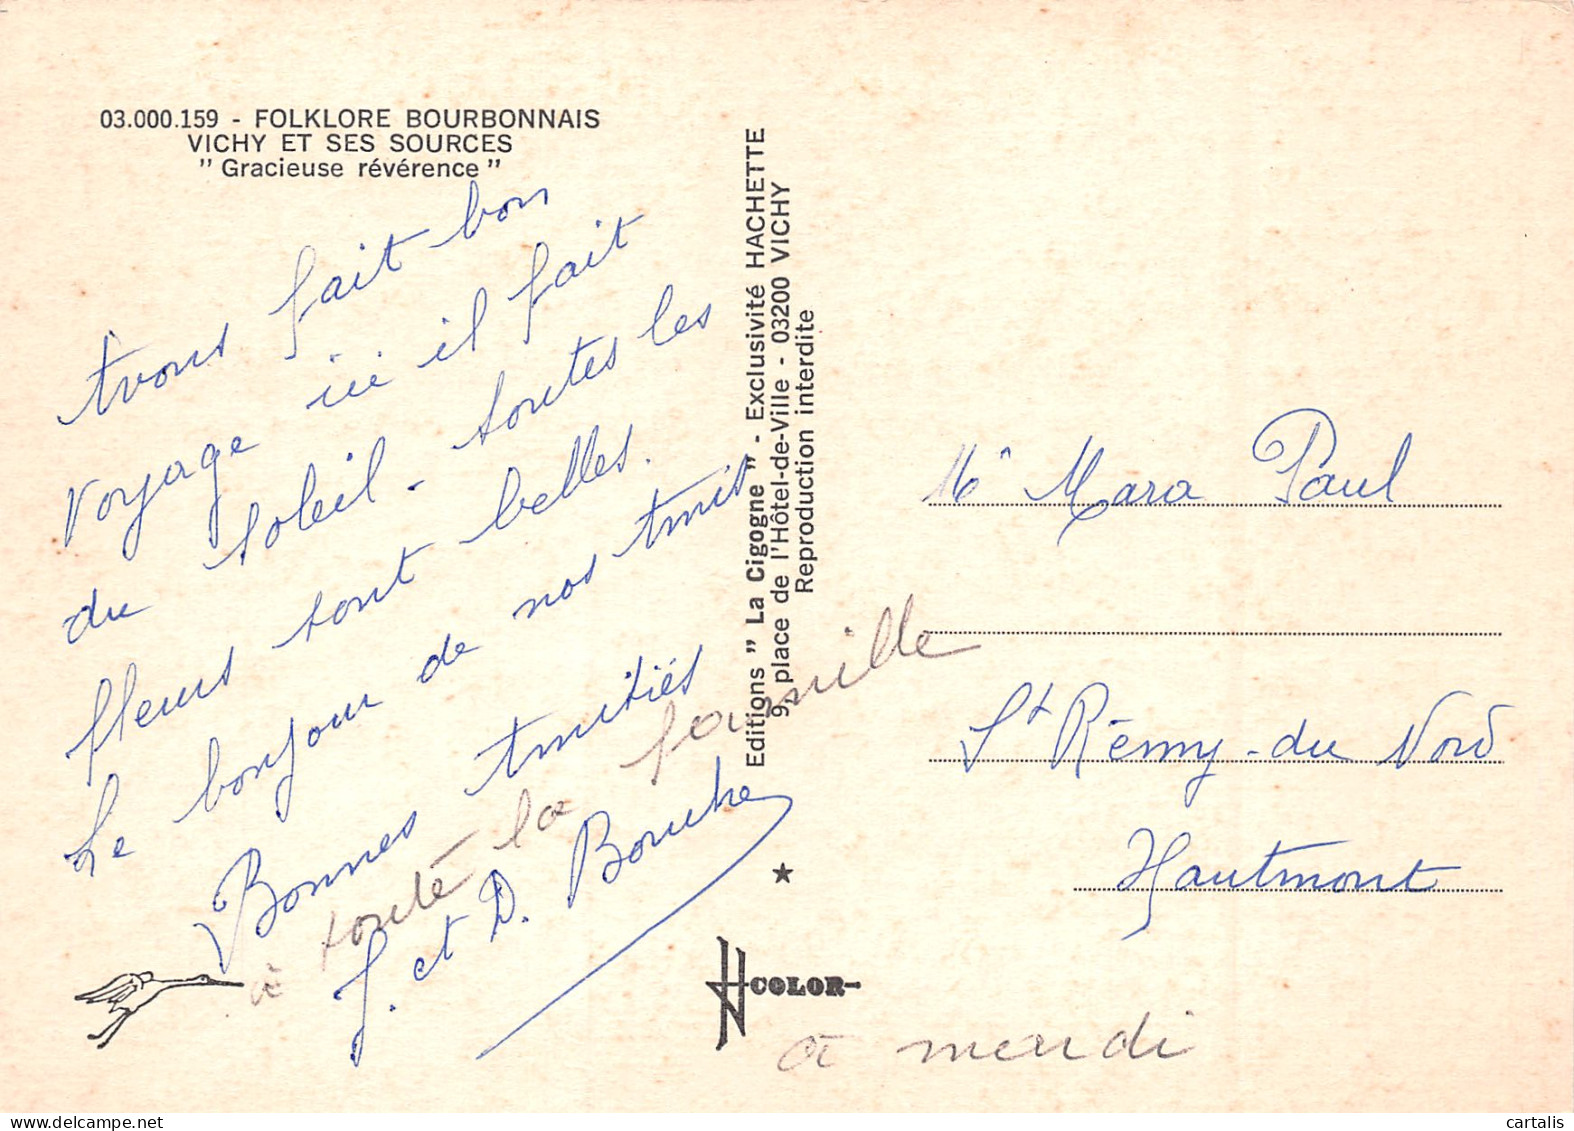 03.000.159 - FOLKLORE BOURBONNAIS
VICHY ET SES SOURCES
" Gracieuse révérence "
Avons fait bon
voyage ici il fait
du soleil - toutes les
fleurs sont belles.
Le bonjour de nos Amis
Bonnes Amitiés
à toute la famille
J. et D. Bouche
Editions " La Cigogne " - Exclusivité HACHETTE
9, place de l'Hôtel-de-Ville - 03200 VICHY
Reproduction interdite
COLOR
Mara Paul
St Rémy-du Nord
Hautmont
a mardi
cartalis